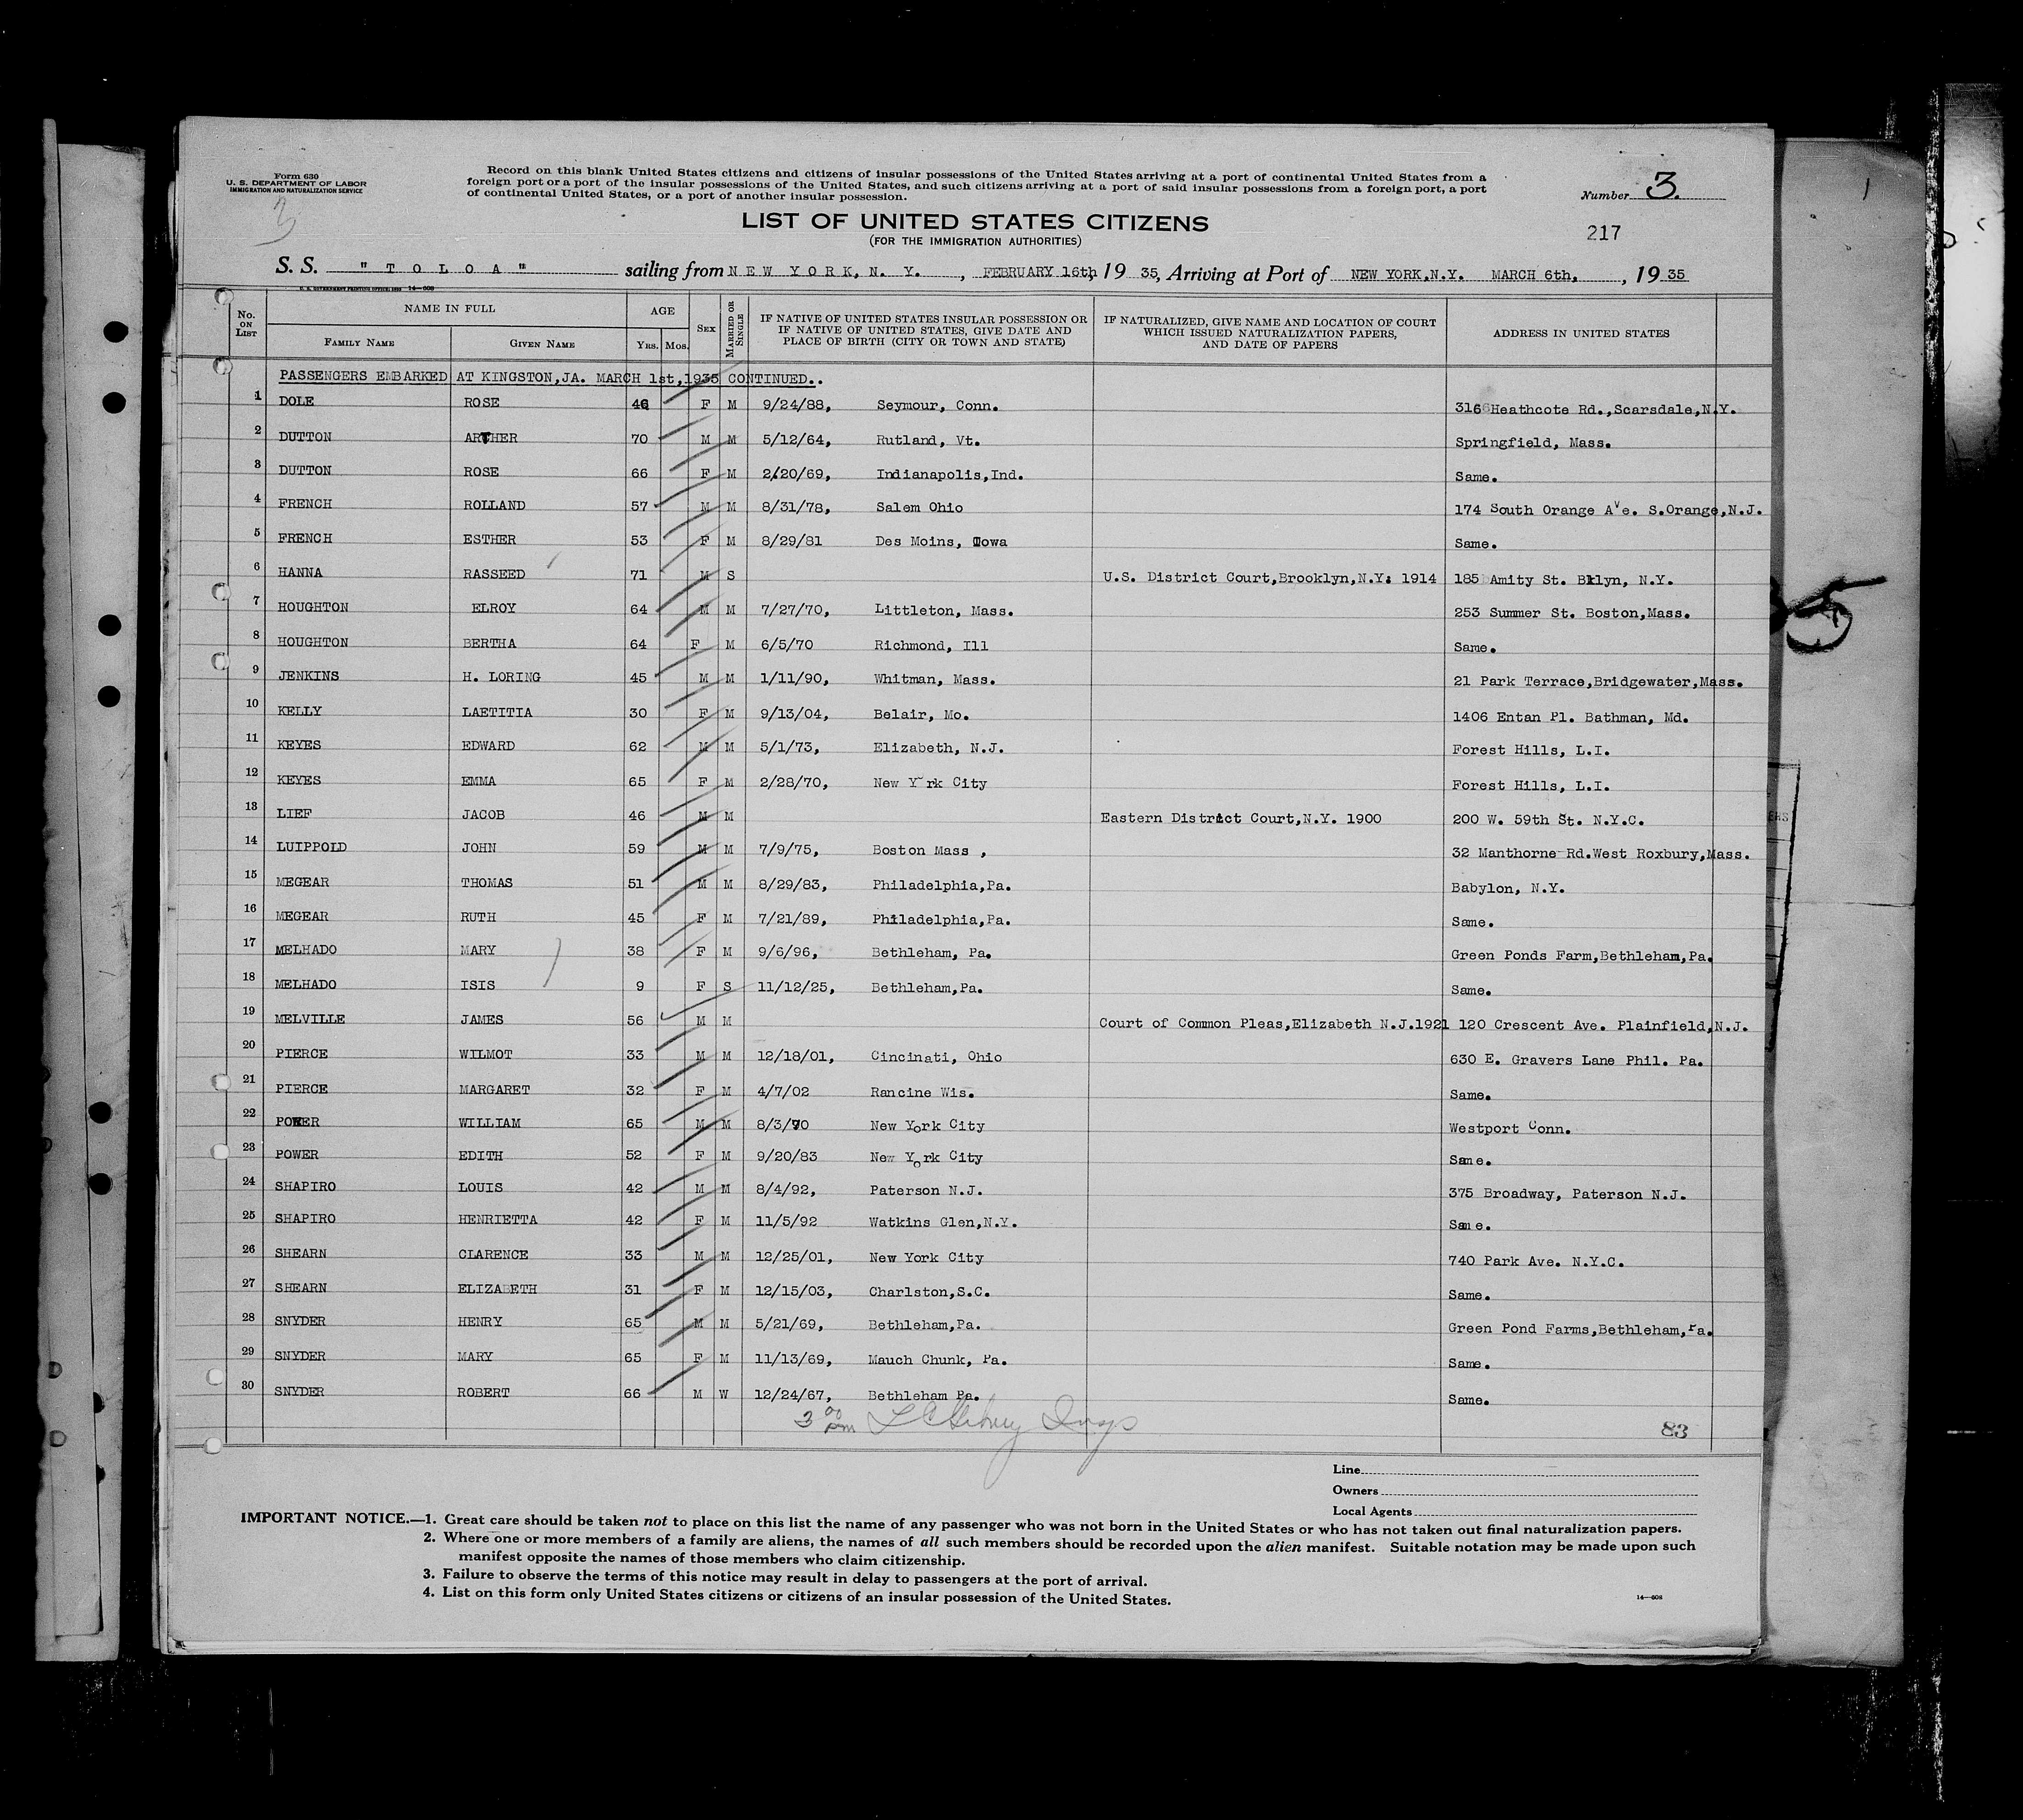 Form 630
U. S. DEPARTMENT OF LABOR
IMMIGRATION AND NATURALIZATION SERVICE
3
Record on this blank United States citizens and citizens of insular possessions of the United States arriving at a port of continental United States from a
foreign port or a port of the insular possessions of the United States, and such citizens arriving at a port of said insular possessions from a foreign port, a port
of continental United States, or a port of another insular possession.
Number 3.
LIST OF UNITED STATES CITIZENS
(FOR THE IMMIGRATION AUTHORITIES)
217
S. S. "TOLOA" sailing from NEW YORK, N. Y., FEBRUARY 16th, 1935, Arriving at Port of NEW YORK,N.Y. MARCH 6th, , 1935
No. ON LIST NAME IN FULL FAMILY NAME GIVEN NAME AGE YRS. MOS. SEX MARRIED OR SINGLE IF NATIVE OF UNITED STATES INSULAR POSSESSION OR IF NATIVE OF UNITED STATES, GIVE DATE AND PLACE OF BIRTH (CITY OR TOWN AND STATE) IF NATURALIZED, GIVE NAME AND LOCATION OF COURT WHICH ISSUED NATURALIZATION PAPERS, AND DATE OF PAPERS ADDRESS IN UNITED STATES
PASSENGERS EMBARKED AT KINGSTON,JA. MARCH 1st,1935 CONTINUED..
1 DOLE ROSE 46 F M 9/24/88, Seymour, Conn. 316 Heathcote Rd.,Scarsdale,N.Y.
2 DUTTON ARTHER 70 M M 5/12/64, Rutland, Vt. Springfield, Mass.
3 DUTTON ROSE 66 F M 2/20/69, Indianapolis,Ind. Same.
4 FRENCH ROLLAND 57 M M 8/31/78, Salem Ohio 174 South Orange Ave. S.Orange,N.J.
5 FRENCH ESTHER 53 F M 8/29/81 Des Moins, Iowa Same.
6 HANNA RASSEED 71 M S U.S. District Court,Brooklyn,N.Y. 1914 185 Amity St. Bklyn, N.Y.
7 HOUGHTON ELROY 64 M M 7/27/70, Littleton, Mass. 253 Summer St. Boston,Mass.
8 HOUGHTON BERTHA 64 F M 6/5/70 Richmond, Ill Same.
9 JENKINS H. LORING 45 M M 1/11/90, Whitman, Mass. 21 Park Terrace,Bridgewater,Mass.
10 KELLY LAETITIA 30 F M 9/13/04, Belair, Mo. 1406 Entan Pl. Bathman, Md.
11 KEYES EDWARD 62 M M 5/1/73, Elizabeth, N.J. Forest Hills, L.I.
12 KEYES EMMA 65 F M 2/28/70, New York City Forest Hills, L.I.
13 LIEF JACOB 46 M M Eastern District Court,N.Y. 1900 200 W. 59th St. N.Y.C.
14 LUIPPOLD JOHN 59 M M 7/9/75, Boston Mass , 32 Manthorne Rd.West Roxbury,Mass.
15 MEGEAR THOMAS 51 M M 8/29/83, Philadelphia,Pa. Babylon, N.Y.
16 MEGEAR RUTH 45 F M 7/21/89, Philadelphia,Pa. Same.
17 MELHADO MARY 38 F M 9/6/96, Bethleham, Pa. Green Ponds Farm,Bethleham,Pa.
18 MELHADO ISIS 9 F S 11/12/25, Bethleham,Pa. Same.
19 MELVILLE JAMES 56 M M Court of Common Pleas,Elizabeth N.J.1921 120 Crescent Ave. Plainfield,N.J.
20 PIERCE WILMOT 33 M M 12/18/01, Cincinati, Ohio 630 E. Gravers Lane Phil. Pa.
21 PIERCE MARGARET 32 F M 4/7/02 Rancine Wis. Same.
22 POWER WILLIAM 65 M M 8/3/70 New York City Westport Conn.
23 POWER EDITH 52 F M 9/20/83 New York City Same.
24 SHAPIRO LOUIS 42 M M 8/4/92, Paterson N.J. 375 Broadway, Paterson N.J.
25 SHAPIRO HENRIETTA 42 F M 11/5/92 Watkins Glen,N.Y. Same.
26 SHEARN CLARENCE 33 M M 12/25/01, New York City 740 Park Ave. N.Y.C.
27 SHEARN ELIZABETH 31 F M 12/15/03, Charlston,S.C. Same.
28 SNYDER HENRY 65 M M 5/21/69, Bethleham,Pa. Green Pond Farms,Bethleham,Pa.
29 SNYDER MARY 65 F M 11/13/69, Mauch Chunk, Pa. Same.
30 SNYDER ROBERT 66 M W 12/24/67, Bethleham Pa. Same.
3 00 pm
83
Line
Owners
Local Agents
IMPORTANT NOTICE.—1. Great care should be taken not to place on this list the name of any passenger who was not born in the United States or who has not taken out final naturalization papers.
2. Where one or more members of a family are aliens, the names of all such members should be recorded upon the alien manifest. Suitable notation may be made upon such
manifest opposite the names of those members who claim citizenship.
3. Failure to observe the terms of this notice may result in delay to passengers at the port of arrival.
4. List on this form only United States citizens or citizens of an insular possession of the United States.
14—608